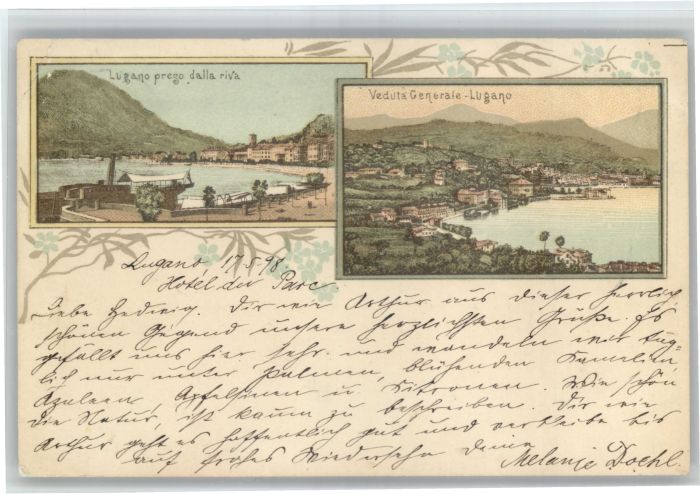 Lugano prezo dalla riva
Veduta Generale - Lugano
Lugano 17.5.98
Hôtel du Parc
Liebe Hedwig. Dir wie Arthur aus dieser herrlich
schönen Gegend unsere herzlichsten Grüße. Es
gefällt uns hier sehr und wandeln wir täg-
lich nur unter Palmen, blühenden Kamelien,
Azaleen, Apfelsinen u. Citronen. Wie schön
die Natur, ist kaum zu beschreiben. Dir wie
Arthur geht es hoffentlich gut und verbleibe bis
auf frohes Wiedersehn deine
Melanie Doehl.